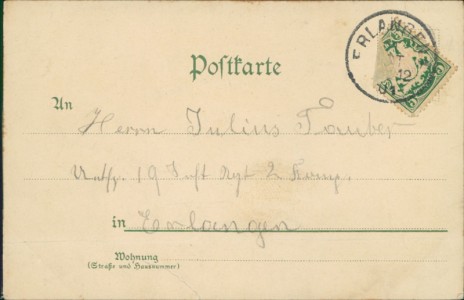 ERLANGEN
Postkarte
An
Herrn Julius Tauber
Untfz. 19 Inft Rgt 2 Komp.
in Erlangen
Wohnung
(Straße und Hausnummer)